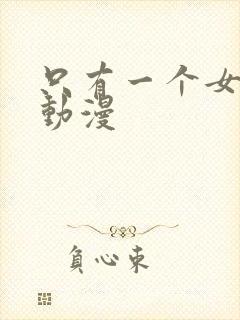 只有一个女
動漫
負心束